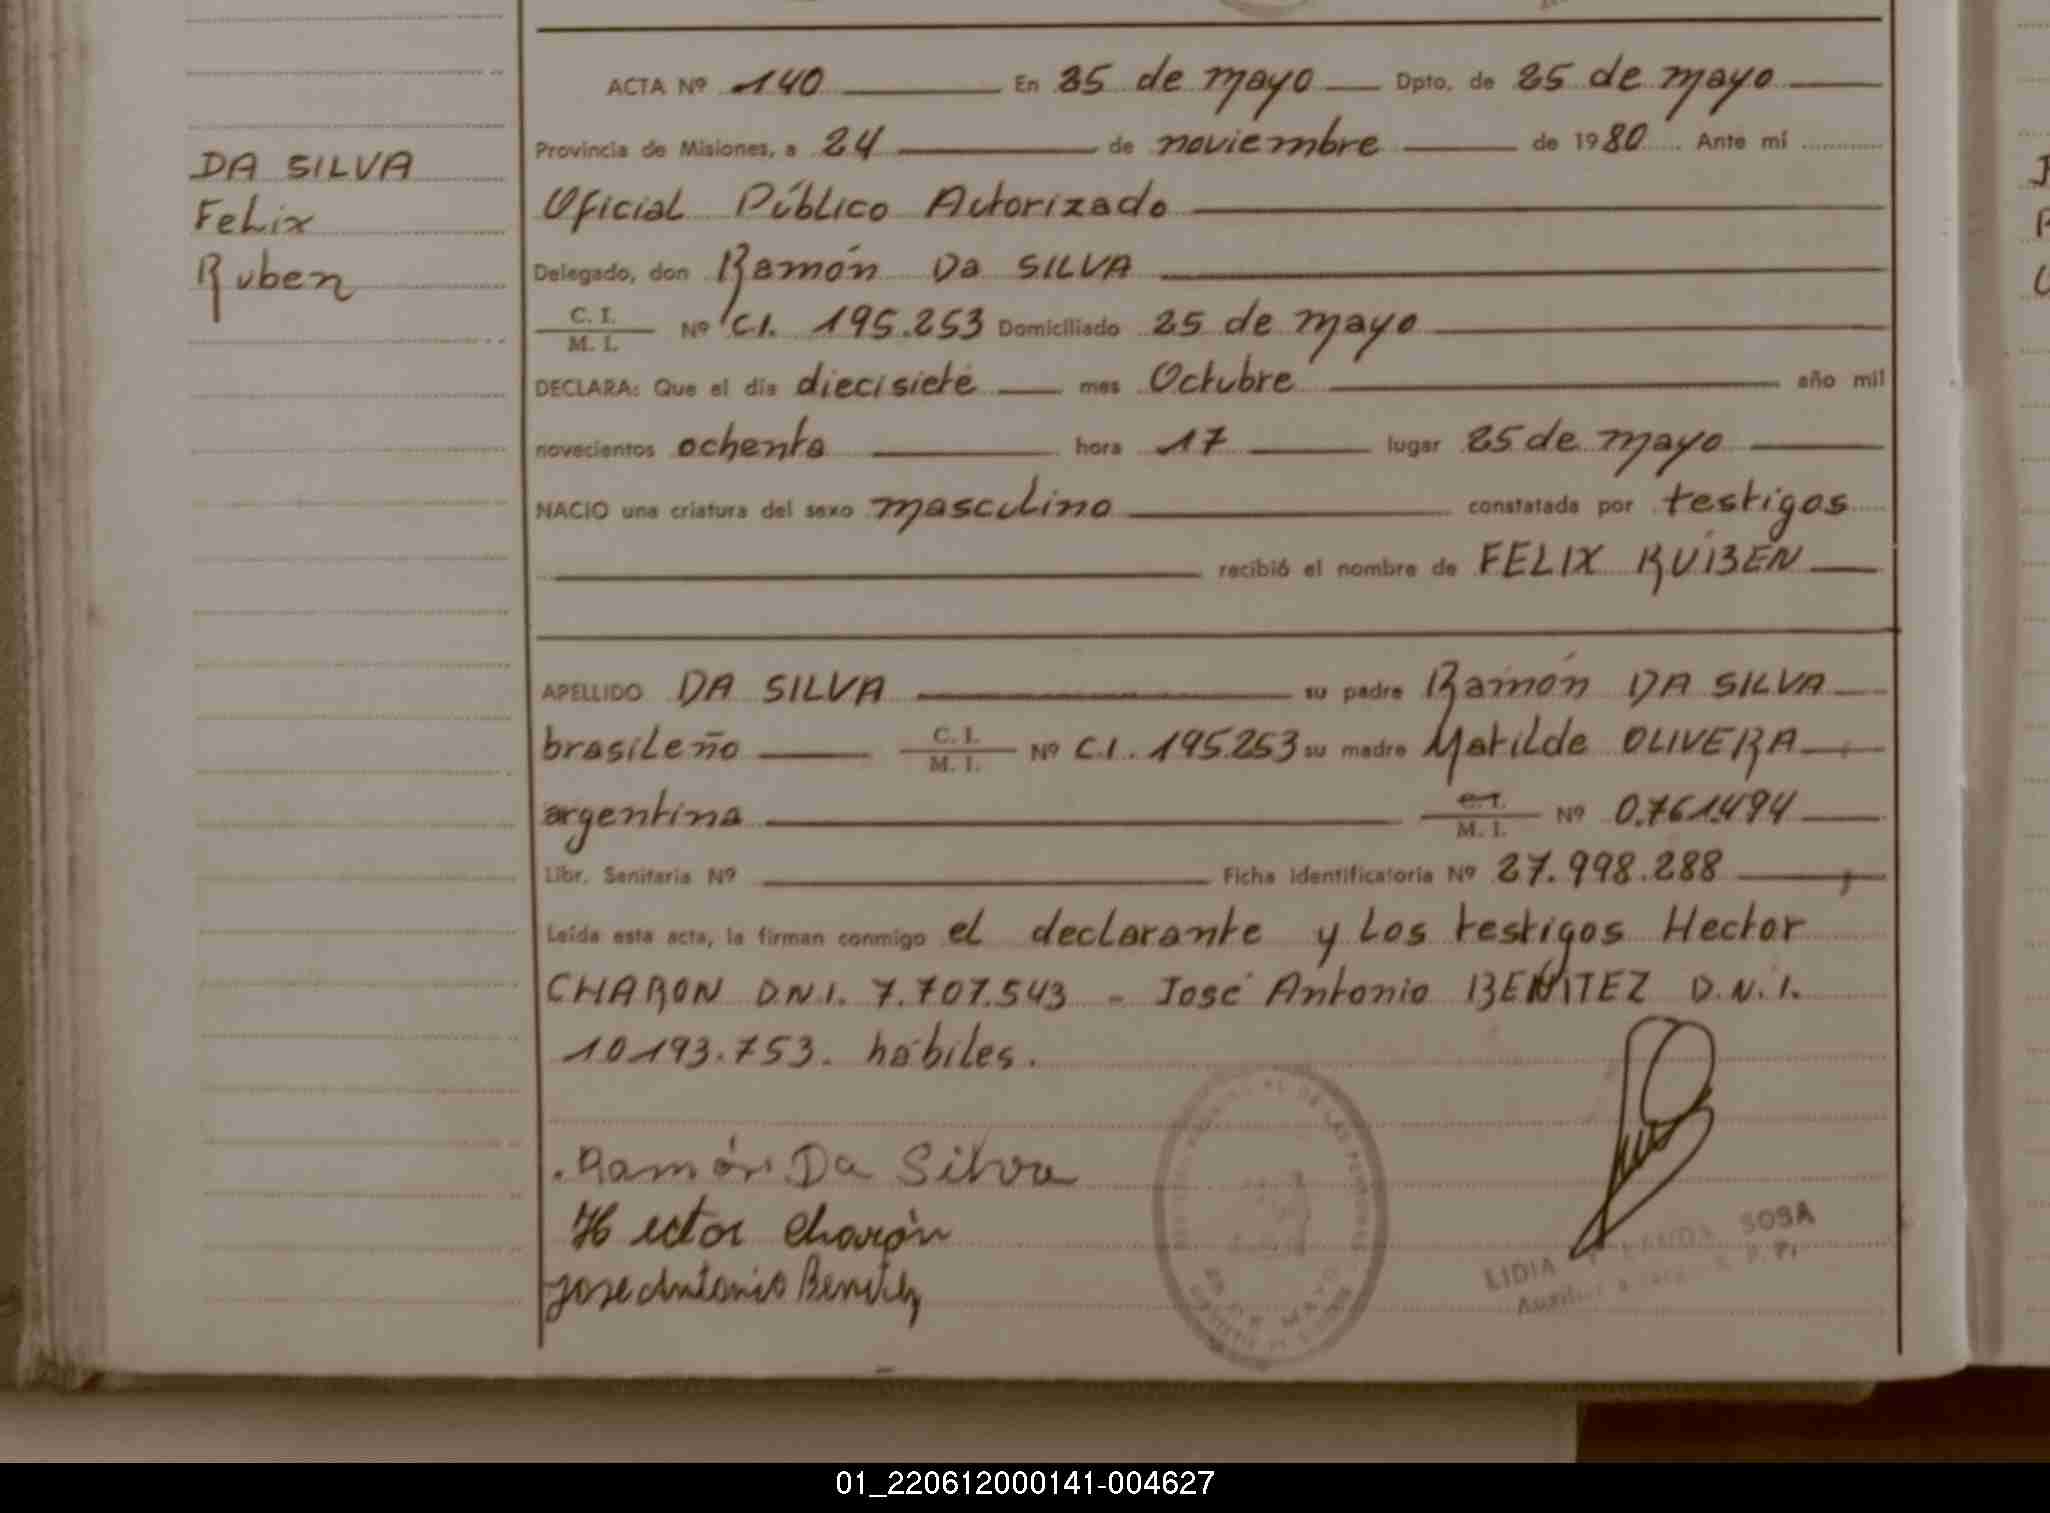 DA SILVA
Felix
Ruben
ACTA Nº 140 En 25 de mayo Dpto. de 25 de mayo
Provincia de Misiones, a 24 de noviembre de 1980 Ante mí
Oficial Público Autorizado
Delegado, don Ramón Da SILVA
C. I.
M. I. Nº C.I. 195.253 Domiciliado 25 de mayo
DECLARA: Que el día diecisiete mes Octubre año mil
novecientos ochenta hora 17 lugar 25 de mayo
NACIO una criatura del sexo masculino constatada por testigos
recibió el nombre de FELIX RUBEN
APELLIDO DA SILVA su padre Ramón DA SILVA
brasileño C. I.
M. I. Nº C.I. 195.253 su madre Matilde OLIVERA
argentina C. I.
M. I. Nº 0.761.494
Libr. Sanitaria Nº Ficha Identificatoria Nº 27.998.288
Leída esta acta, la firman conmigo el declarante y los testigos Hector
CHARON D.N.I. 7.707.543 - José Antonio BENITEZ D.N.I.
10193.753. hábiles.
Ramón Da Silva
Hector Charón
Jose Antonio Benitez
25 DE MAYO
LIDIA SOSA
01_220612000141-004627